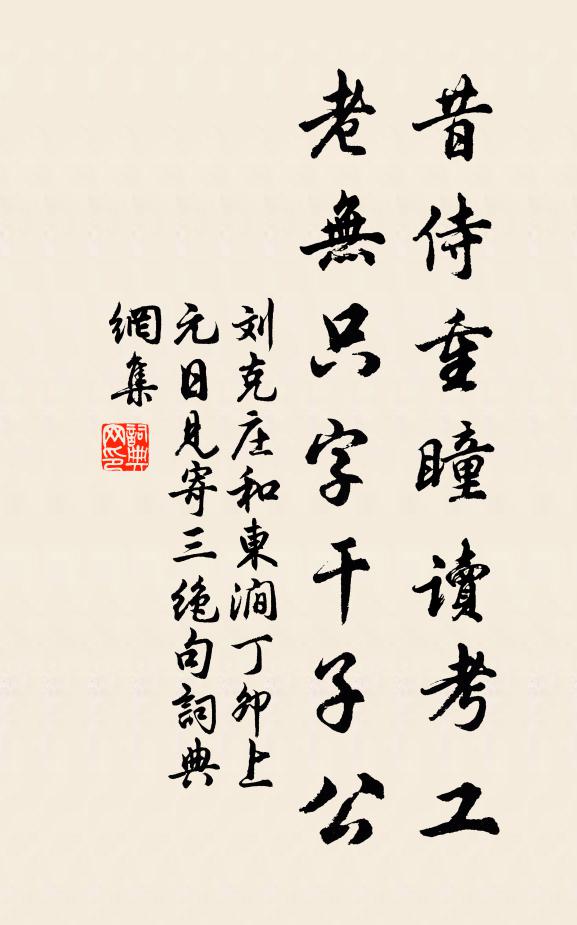 昔侍重瞳讀考工
老無只字干子公
刘克庄和東澗丁卯上
元日見寄三绝句詞典
網集
詞典網印